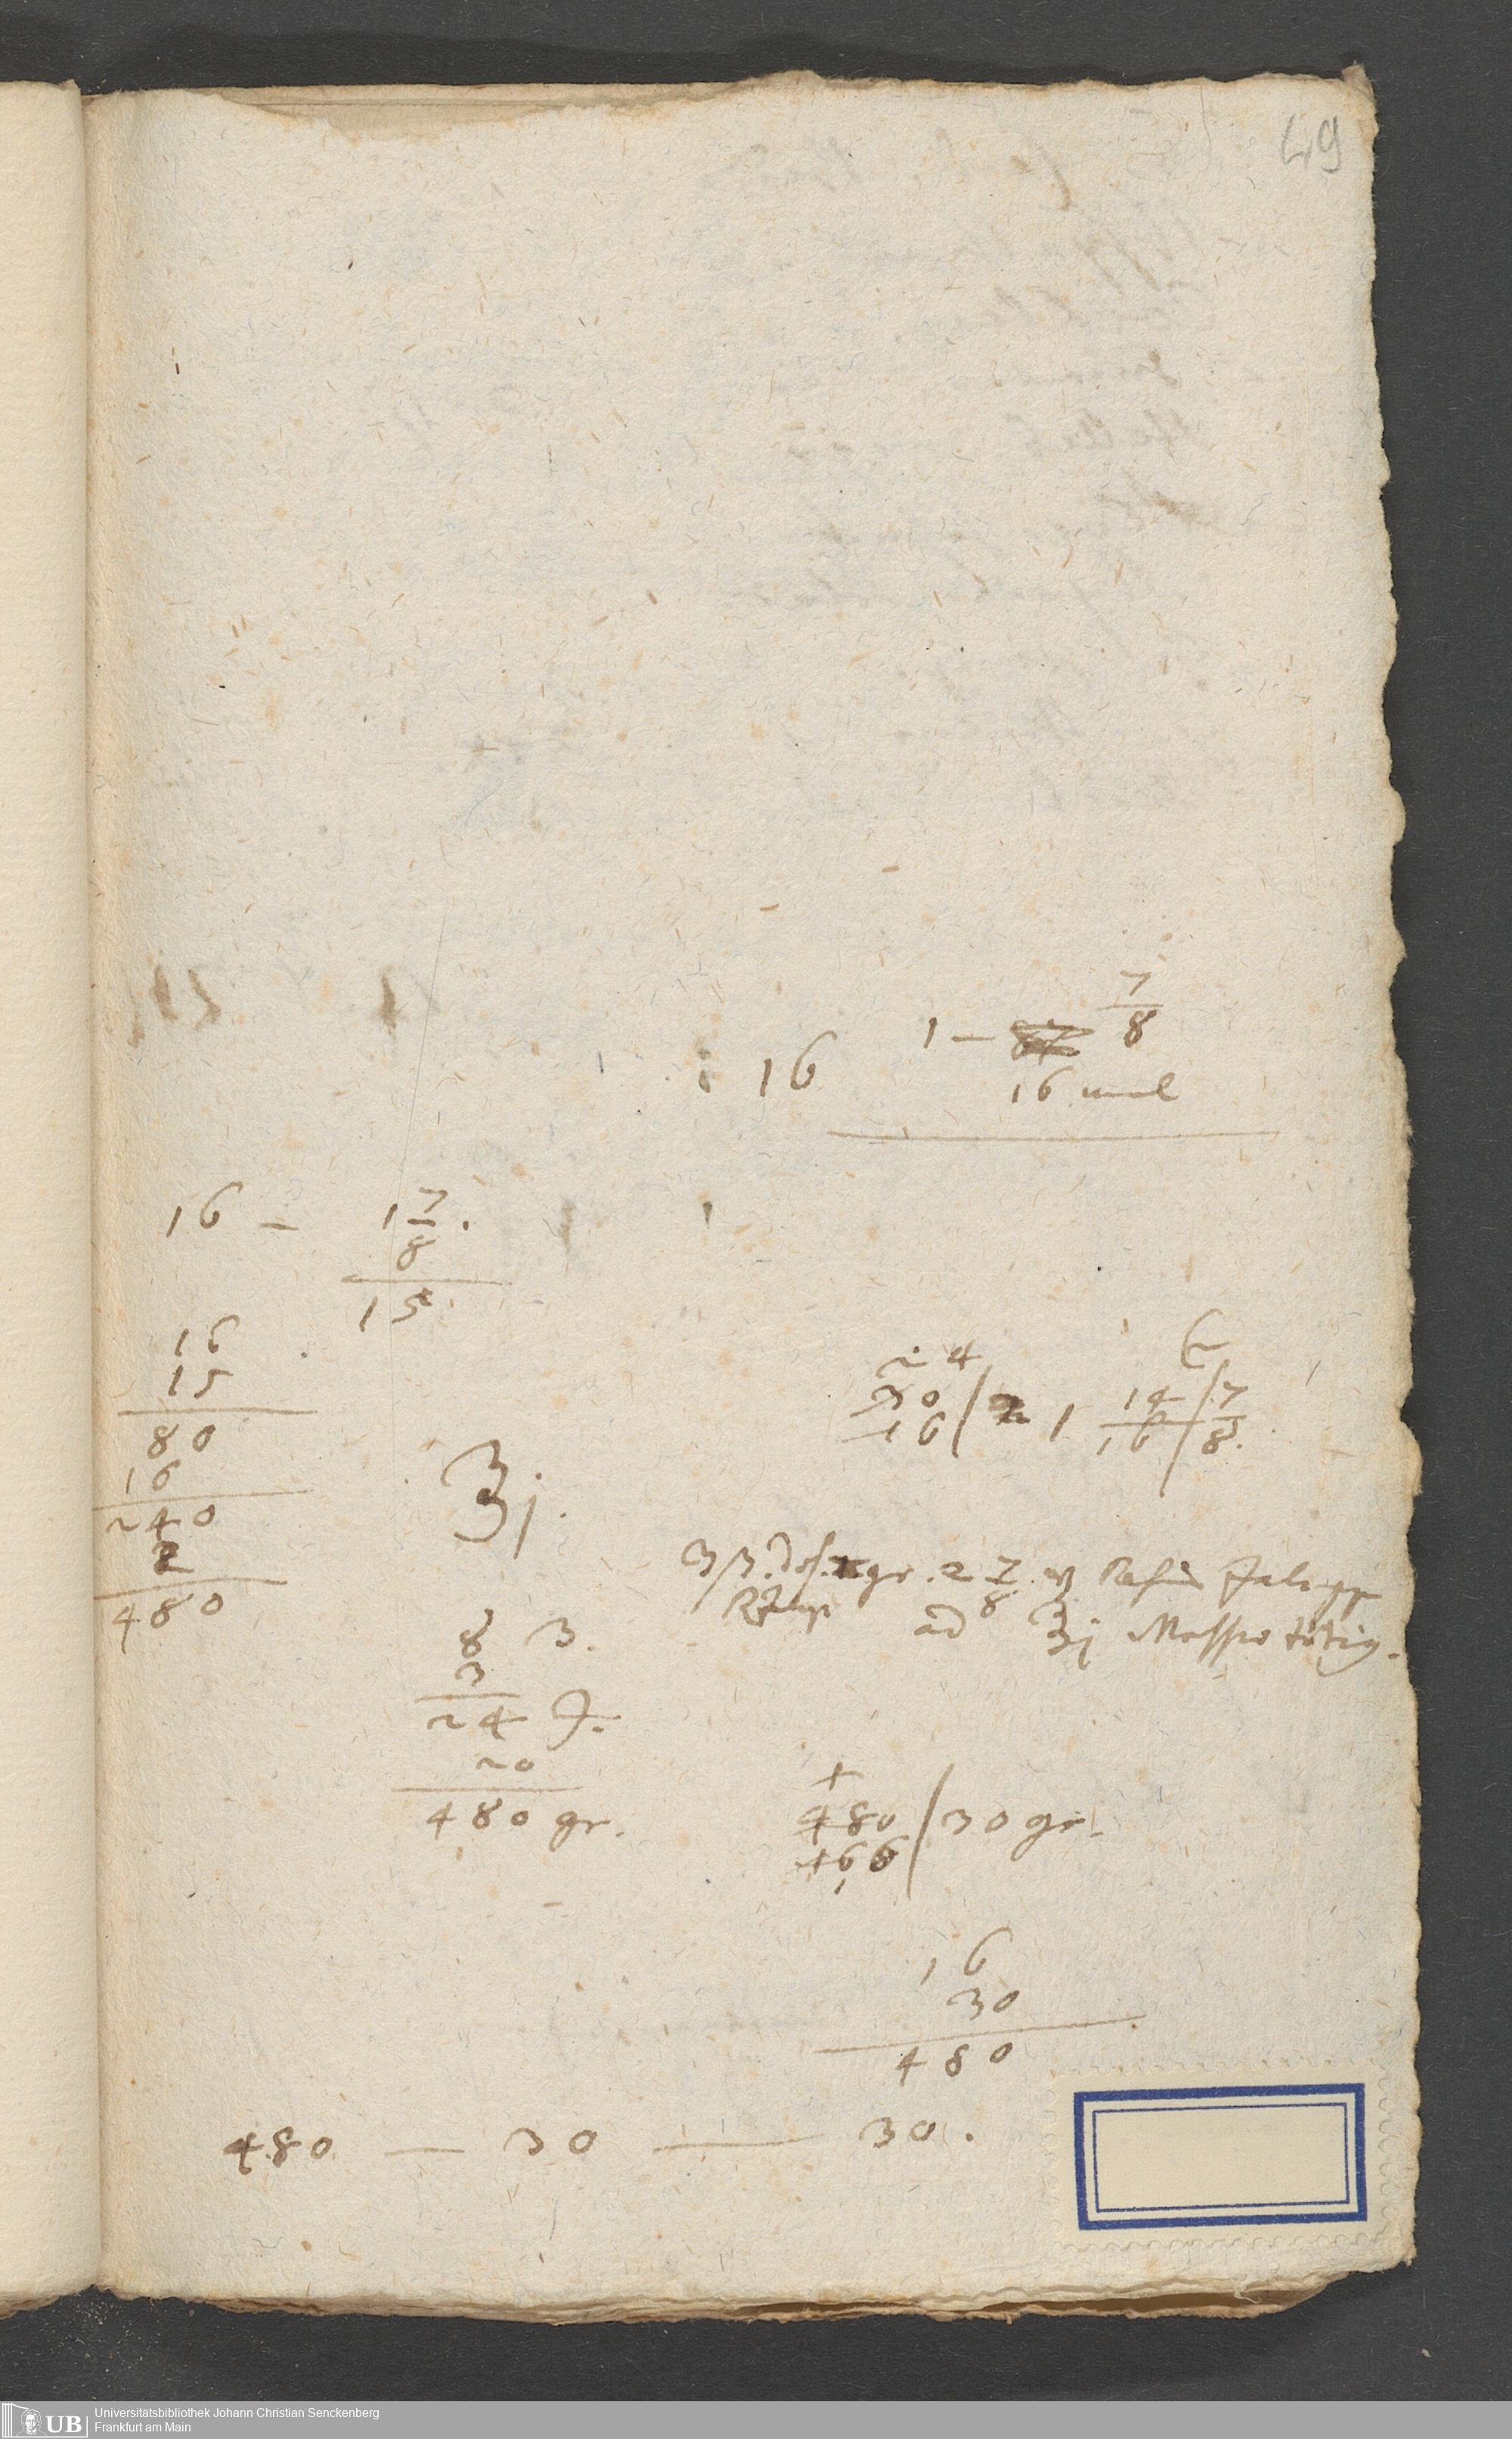 49
7
1 — 8
: 16
16 mal
16 — 1 7/8.
15
16
15
80
16
240
2
480
2 4
30 / 1 14 / 7
16 16 / 8.
ʒj.
ʒβ. gr. 2 7/8
ad ʒj
8 ʒ.
3
24 ℈.
20
480 gr.
480 / 30 gr.
166
1
16
30
480
480 — 30 — 30.
UB
Universitätsbibliothek Johann Christian Senckenberg
Frankfurt am Main